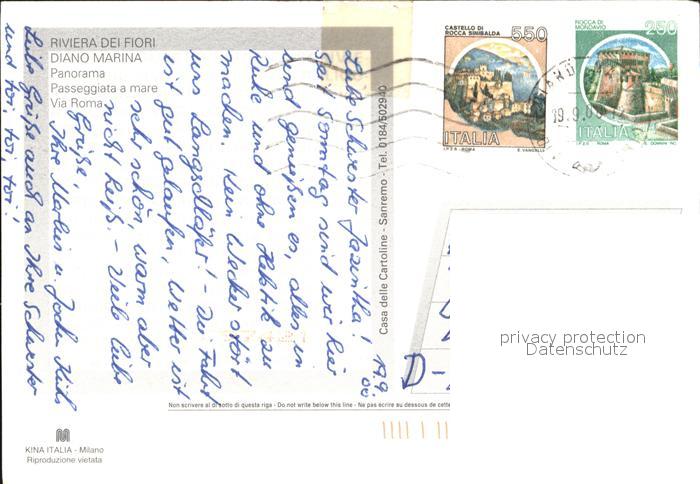 RIVIERA DEI FIORI
DIANO MARINA
Panorama
Passeggiata a mare
Via Roma
CASTELLO DI
ROCCA SINIBALDA
550
ITALIA
I.P.Z.S. - ROMA
E. VANGELLI
ROCCA DI
MONDAVIO
250
ITALIA
I.P.Z.S. ROMA
19.9.0
19.9.
00
Liebe Schwester Jacintha!
Seit Sonntag sind wir hier
und genießen es, alles in
Ruhe und ohne Hektik zu
machen. Kein Wecker stört
uns Langschläfer! - Die Fahrt
ist gut gelaufen, Wetter ist
sehr schön, warm aber
nicht heiß. - Viele liebe
Grüße,
Ihre Marlies u. Jochen
Liebe Grüße auch an Ihre Schwester
und toi, toi, toi!
Casa delle Cartoline - Sanremo - Tel. 0184/502940
D-
Non scrivere al di sotto di questa riga - Do not write below this line - Ne pas écrire au dessous de cette
privacy protection
Datenschutz
KINA ITALIA - Milano
Riproduzione vietata